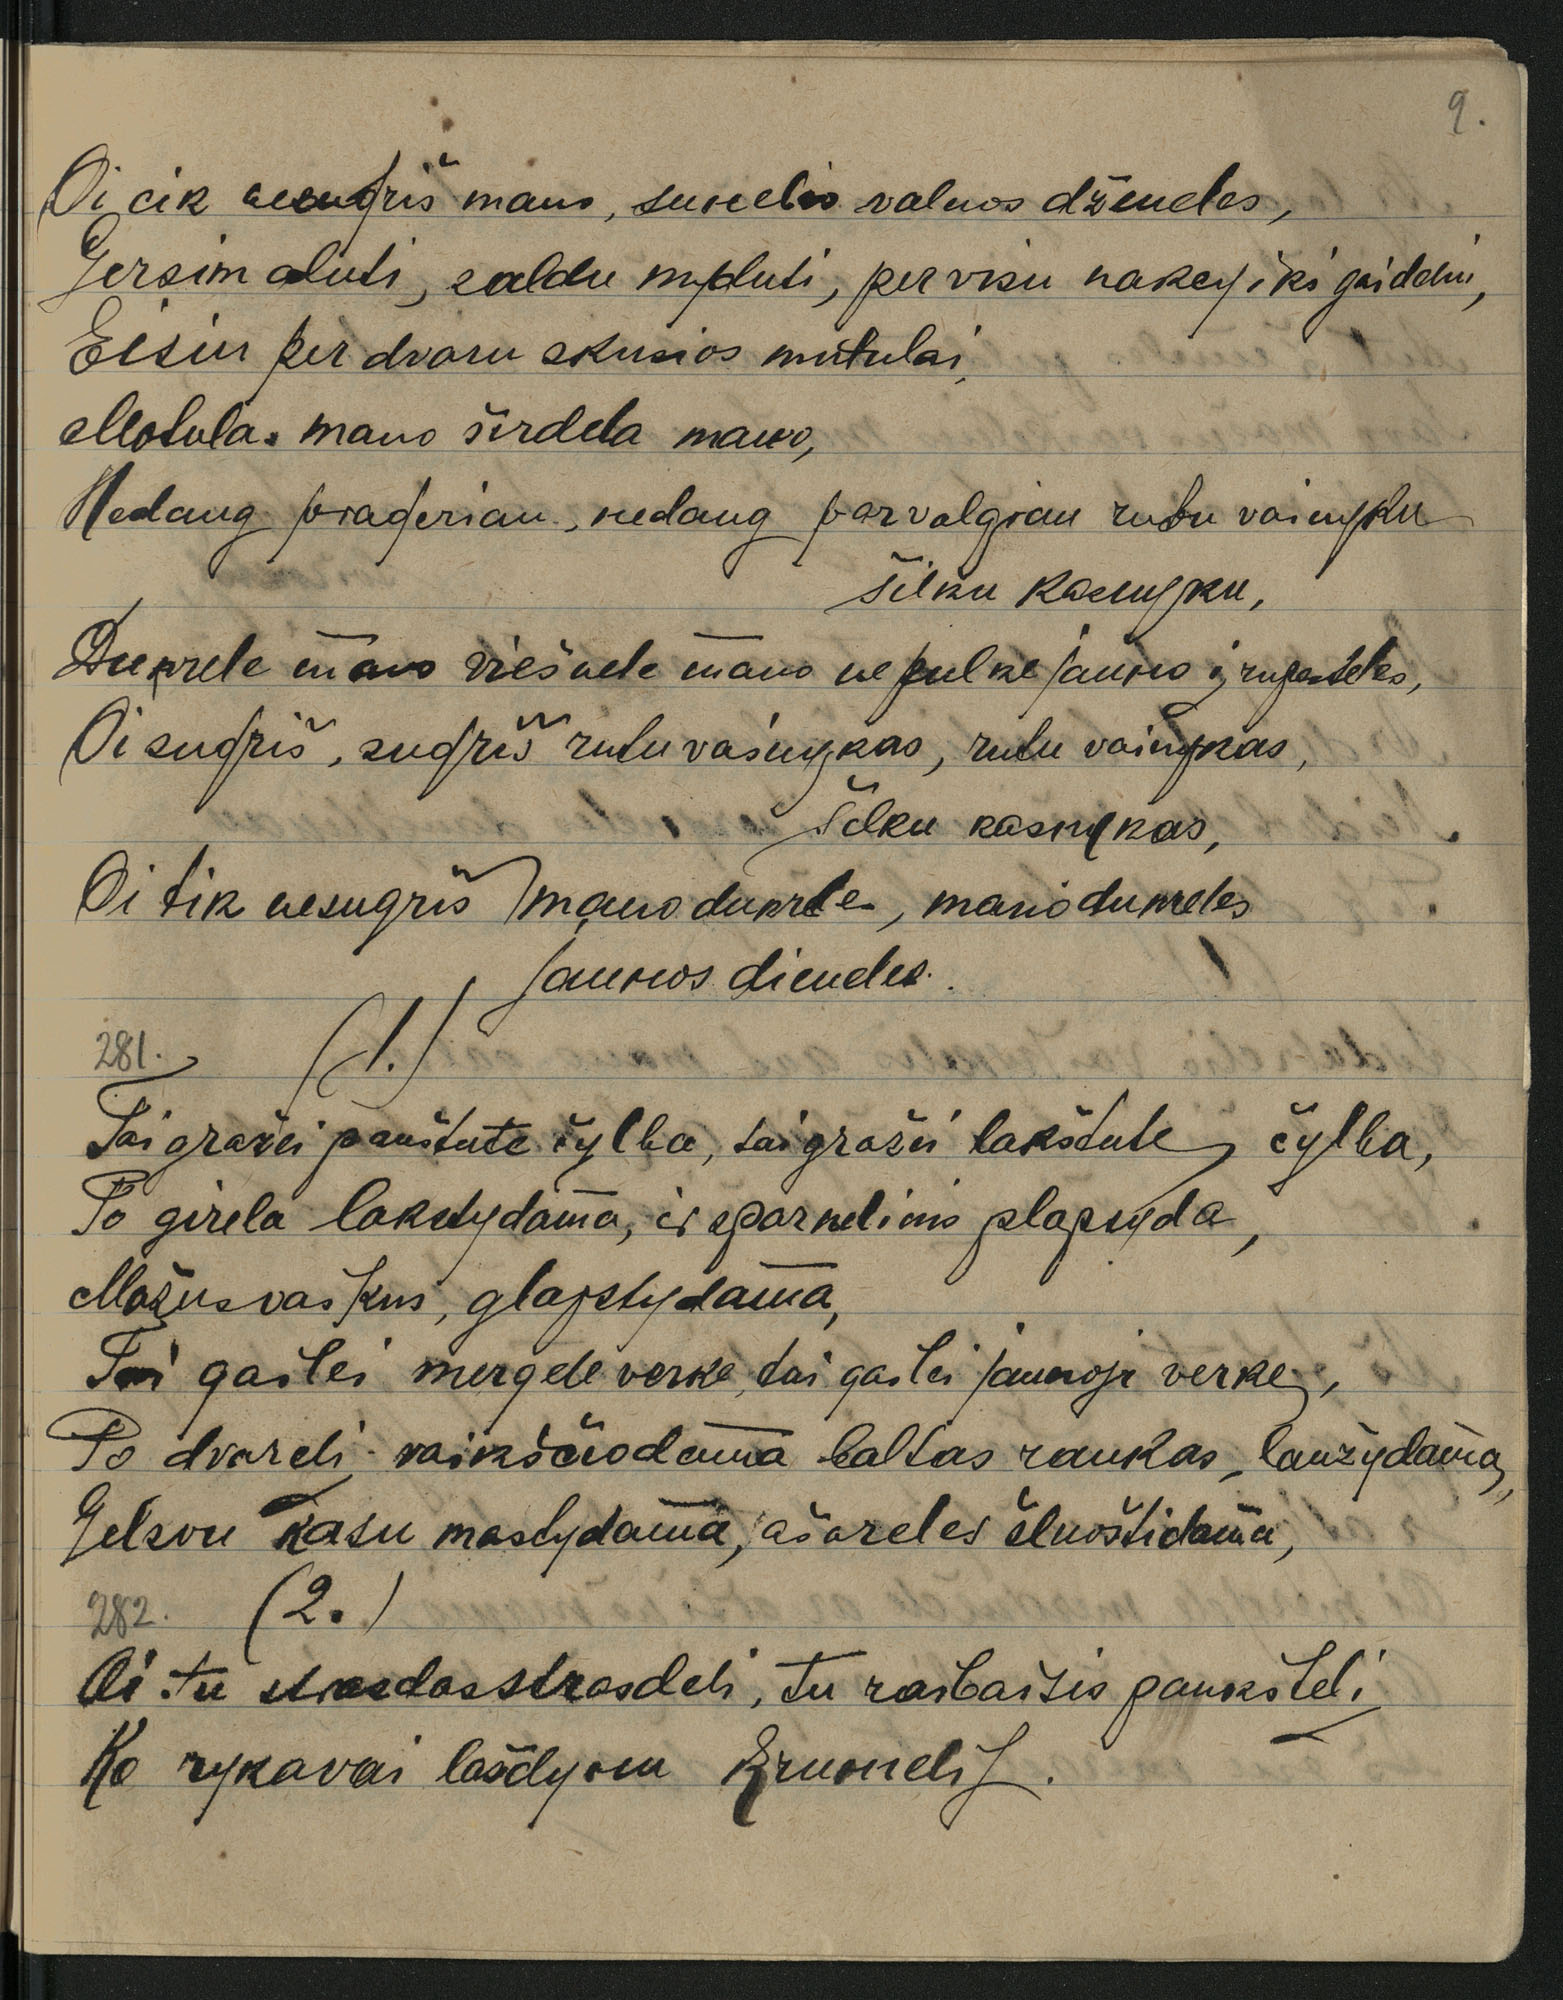 9.
Oi cik nesugriš mano, sunelio valnos dženeles,
Gersim aluti, saldu myduti, per visu nakcy iki gaideliu,
Eisiu per dvaru skusios mutulai,
Motula mano širdela mano,
Nedaug pragerian, nedaug parvalgian rutu vainyku
šilku kasnyku,
Dukrele mano viešnele mano ne pulke jauno
Oi sugriš, sugriš rutu vainykas, rutu vainykas,
šilku kasnykas,
Oi tik nesugriš mano dukrele, mano dukreles
jaunos dieneles.
281. (1.)
Tai gražei paukštute čylba, tai gražei lakštute čylba,
Po girela lakstydama, ir sparneliais plapsyda,
Mažus vaikus, glapstydama,
Tai gailei mergele verke, tai gailei jaunoji verke,
Po dvareli vaikščiodama baltas rankas, laužydama,
Gelsvu kasu mastydama, ašareles šluostidama,
282. (2.)
Oi tu strazdas strasdeli, tu raibaisis paukšteli
Ko rykavai lasdynu krumelij.